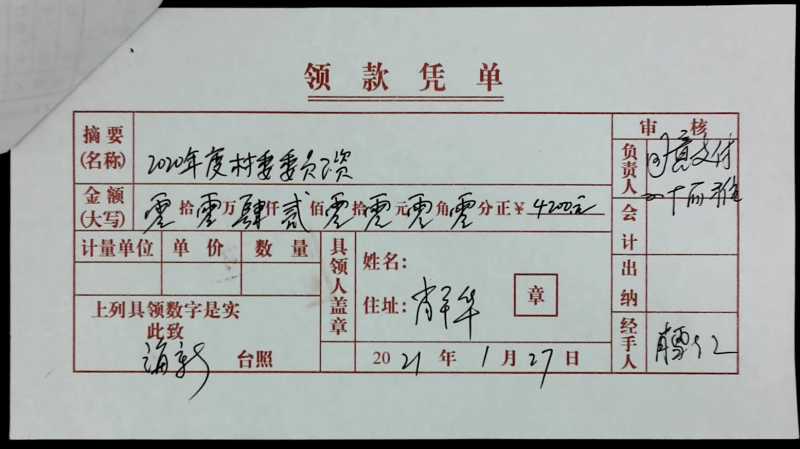 领款凭单
摘要
(名称)
2020年度村委委员工资
金额
(大写)
零拾零万肆仟贰佰零拾零元零角零分正¥4200元
计量单位 单价 数量
上列具领数字是实
此致
台照
具领人盖章
姓名:
住址:
肖 华
章
2021年1月27日
审核
负责人
同意支付
会计
出纳
经手人